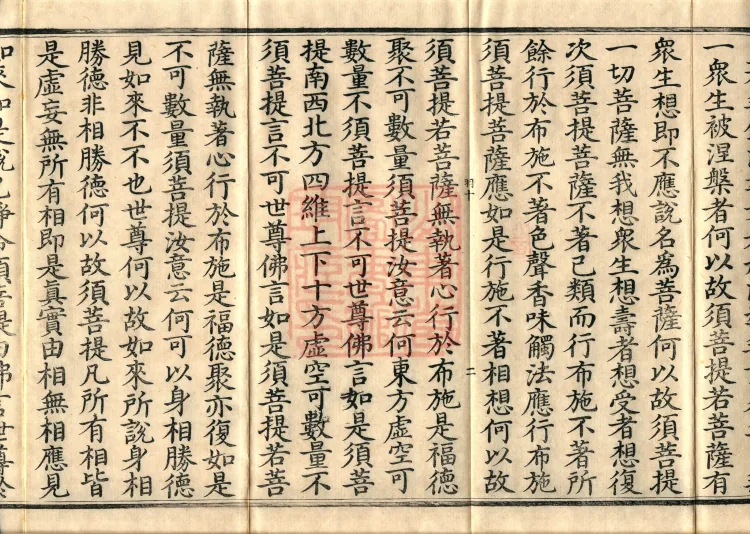 一衆生被涅槃者何以故須菩提若菩薩有
衆生想即不應說名爲菩薩何以故須菩提
一切菩薩無我想衆生想壽者想受者想復
次須菩提菩薩不著己類而行布施不著所
餘行於布施不著色聲香味觸法應行布施
須菩提菩薩應如是行施不著相想何以故
羽十
二
須菩提若菩薩無執著心行於布施是福德
聚不可數量須菩提汝意云何東方虛空可
數量不須菩提言不可世尊佛言如是須菩
提南西北方四維上下十方虛空可數量不
須菩提言不可世尊佛言如是須菩提若菩
薩無執著心行於布施是福德聚亦復如是
不可數量須菩提汝意云何可以身相勝德
見如來不不也世尊何以故如來所說身相
勝德非相勝德何以故須菩提凡所有相皆
是虛妄無所有相即是真實由相無相應見